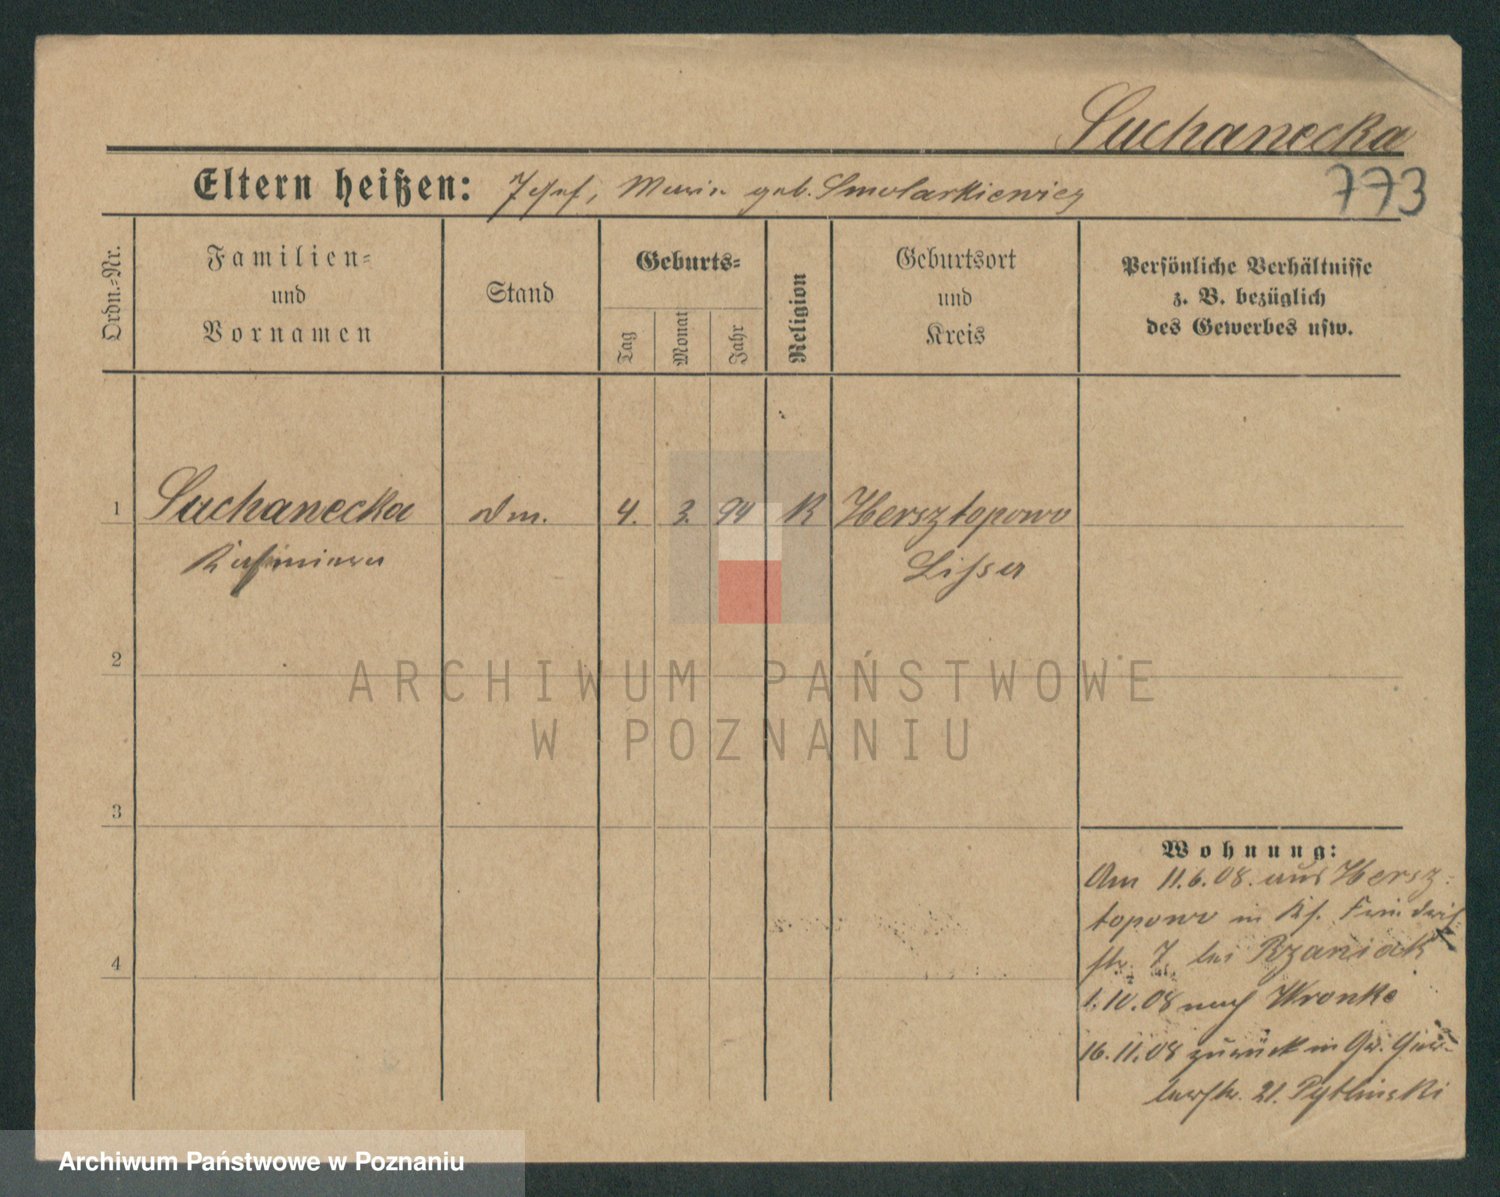 Suchanecka
Eltern heißen: Josef, Maria geb. Smolarkiewicz
773
Ordn.-Nr.
Familien-
und
Vornamen
Stand
Geburts-
Tag
Monat
Jahr
Religion
Geburtsort
und
Kreis
Persönliche Verhältnisse
z. B. bezüglich
des Gewerbes usw.
1 Suchanecka 4. 3. 94 K Hersztopowo
Kasimira Lissa
2
3
4
Wohnung:
Am 11.6.08. aus Hersz-
topowo in
str. 7. bei Rzaniak
1.10.08 nach Wronke
16.11.08 zurück in
21. Pytlinski
ARCHIWUM PAŃSTWOWE
W POZNANIU
Archiwum Państwowe w Poznaniu